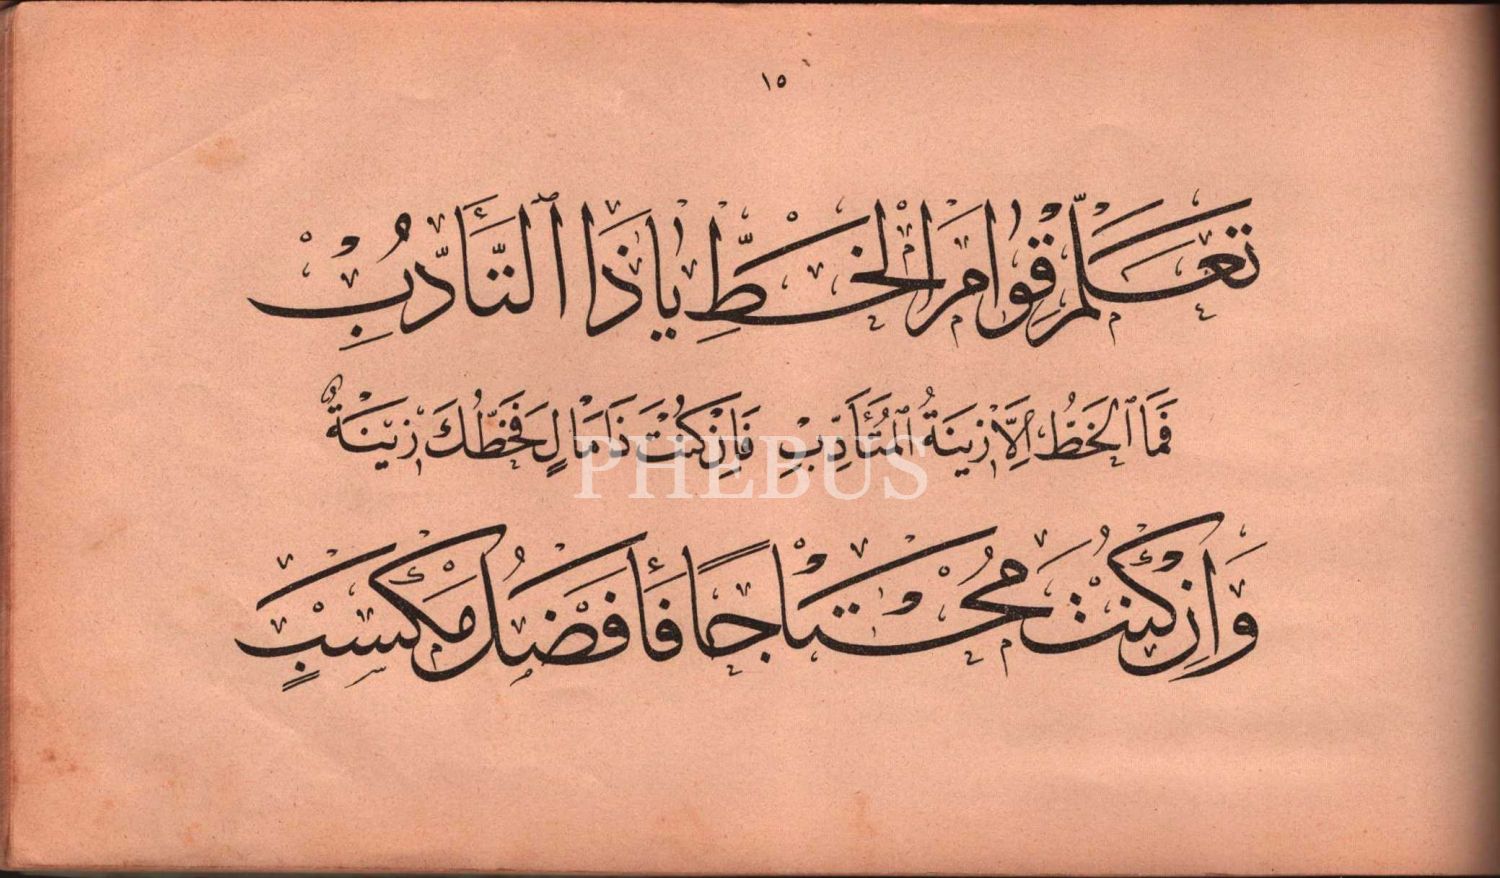 ١٥
تَعَلَّمْ قِوَامَ الْخَطِّ يَا ذَا التَّأَدُّبِ
فَمَا الْخَطُّ اِلَّا زِينَةُ الْمُتَأَدِّبِ فَاِنْ كُنْتَ ذَا مَالٍ فَخَطُّكَ زِينَةٌ
PHEBUS
وَاِنْ كُنْتَ مُحْتَاجًا فَأَفْضَلُ مَكْسَبٍ